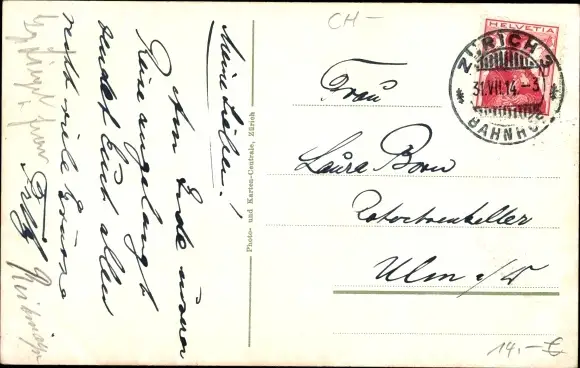 CH-
HELVETIA
ZÜRICH 3
31.VII.14.-3
BAHNHOF
Meine Lieben!
Am Ende unserer
Reise angelangt
sendet Euch allen
recht viele Grüsse
Fritz
Photo- und Karten-Centrale, Zürich
Frau
Laura Born
Ulm a/D
14,- €